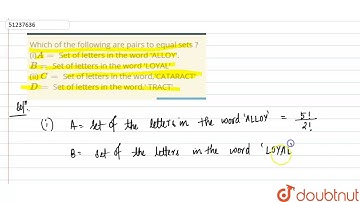 51237636
Which of the following are pairs to equal sets ?
(i)A = Set of letters in the word 'ALLOY'.
B = Set of letters in the word 'LOYAL'
(ii) C = Set of letters in the word,'CATARACT'
D = Set of letters in the word. 'TRACT'.
Solⁿ.
(i) A = set of the letters in the word 'ALLOY' = 5! / 2!
B = set of the letters in the word 'LOYAL
doubtnut